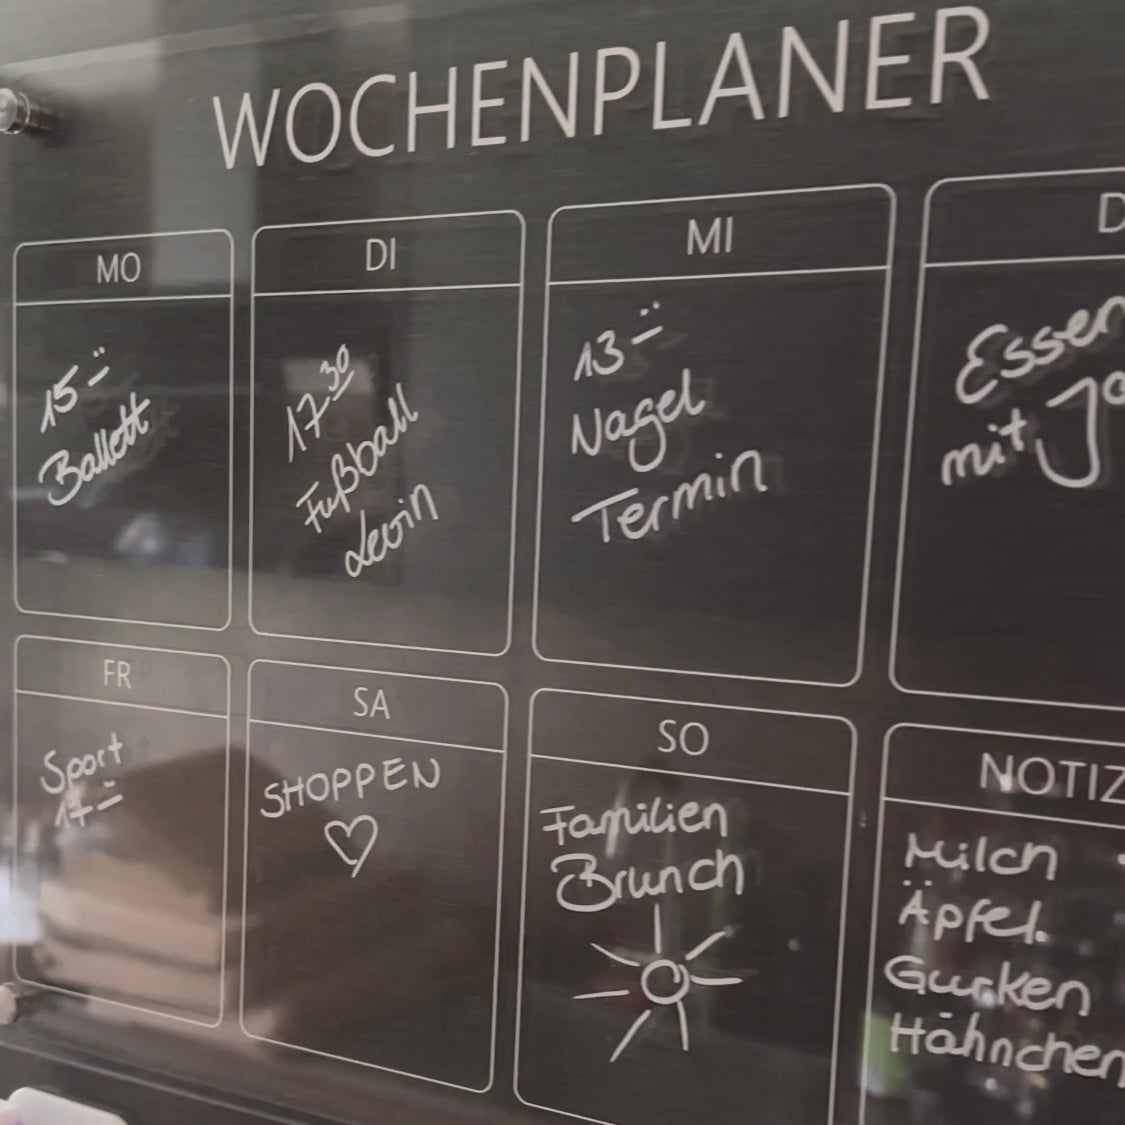 WOCHENPLANER
MO
15
Ballett
DI
17 30
Fußball
Levin
MI
13
Nagel
Termin
D
Essen
mit
FR
Sport
17
SA
SHOPPEN
SO
Familien
Brunch
NOTIZ
Milch
Äpfel.
Gurken
Hähnchen